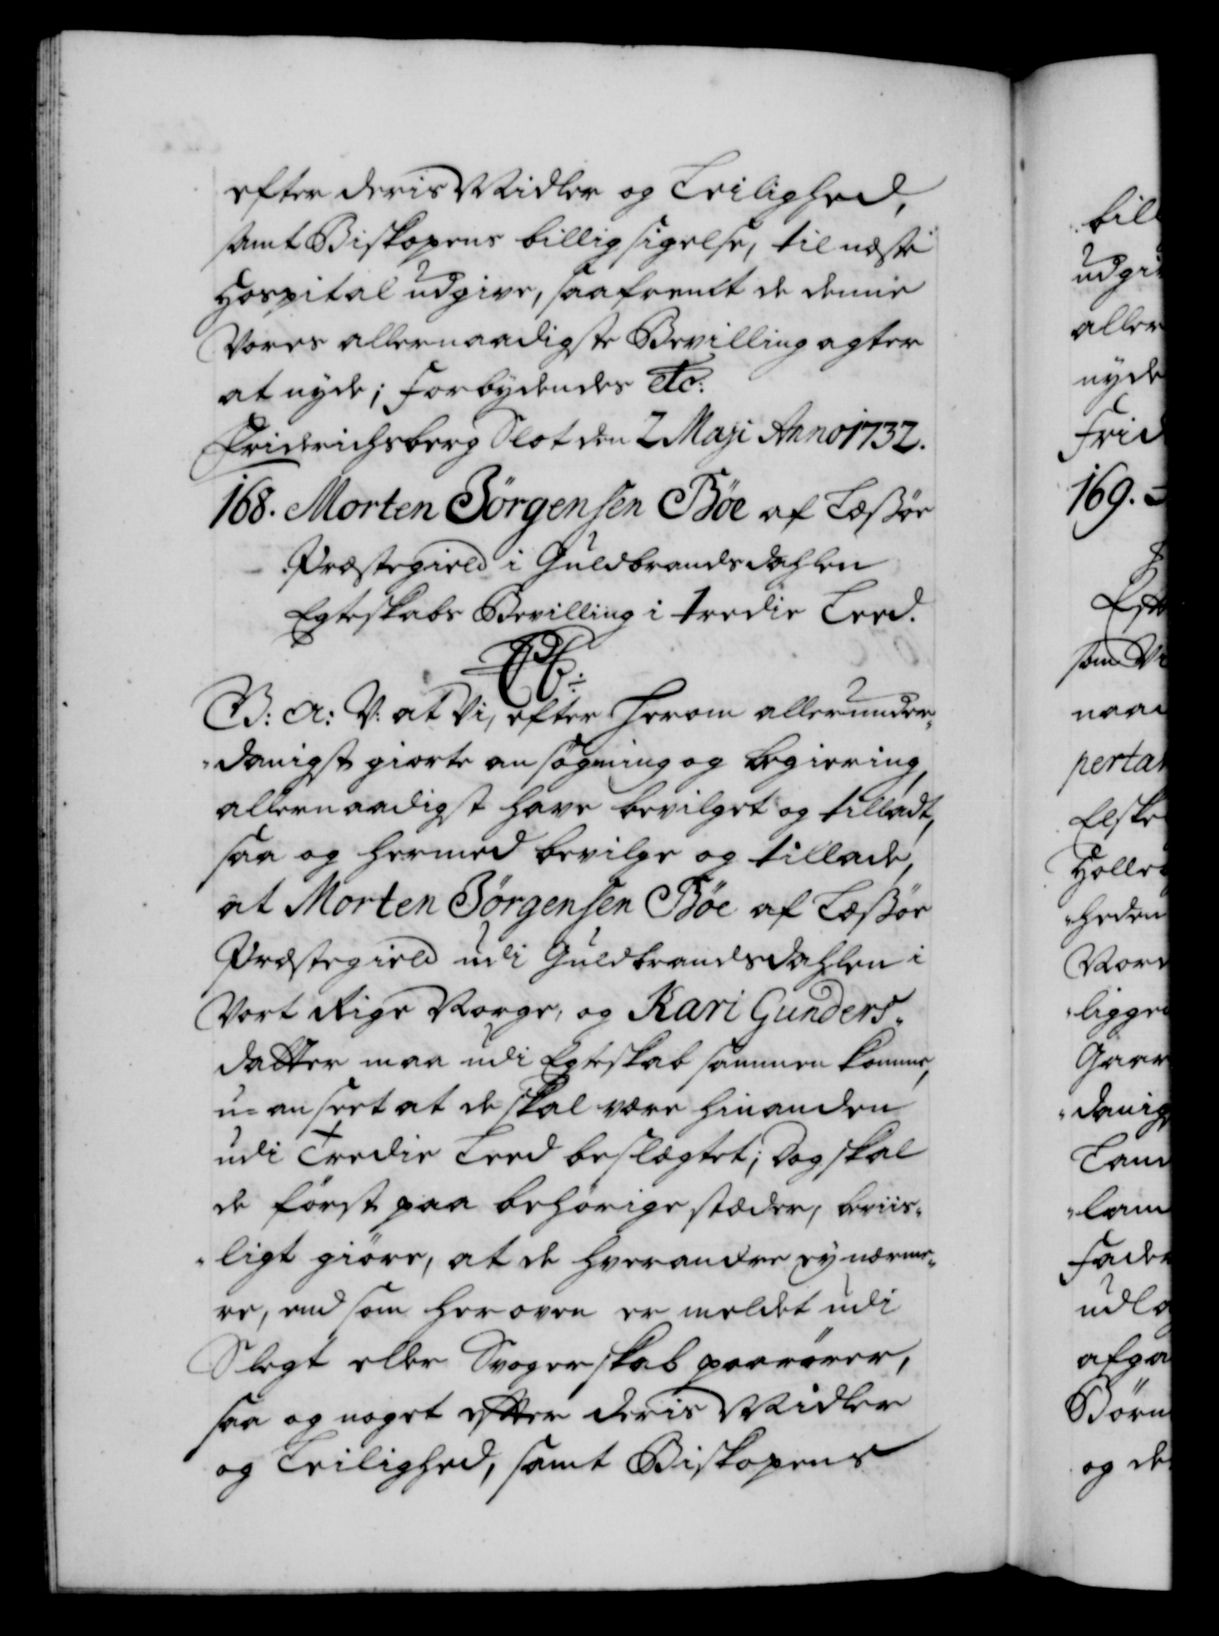 efter deris Midler og Leilighed,
samt Biskopens billig sigelse, til næste
Hospital udgive, saafremt de denne
Vores allernaadigste Bevilling agter
at nyde; Forbydendes etc:
Friderichsberg Slot den 2 Maji Anno 1732.
168. Morten Jörgensen Bøe af Læssøe
Præstegield i Guldbrandsdahlen
Egteskabs Bevilling i tredie Leed.
B: A: V: at Vi, efter herom allerunder„
„danigst giorte ansøgning og begiering,
allernaadigst have bevilget og tilladt,
saa og hermed bevilge og tillade,
at Morten Jörgensen Bøe af Læssøe
Præstegield udi Guldbrandsdahlen i
Vort Rige Norge, og Kari Gunders„
datter maa udi Egteskab sammen komme,
u=anseet at de skal være hinanden
udi Tredie Leed beslægtet; Dog skal
de først paa behørige stæder, beviis„
„ligt giöre, at de hverandre ey nærme„
re, end som her oven er meldet udi
Slegt eller Svogerskab paarörer,
saa og noget efter deris Midler
og Leilighed, samt Biskopens
bill
udgi
aller
nyde
Frid
169.
som Vi
naa
pertat
Elske
Holle
„heden
Vore
„ligge
Gaar
„danig
Lan
„lam
Fader
udla
afga
Børn
og de